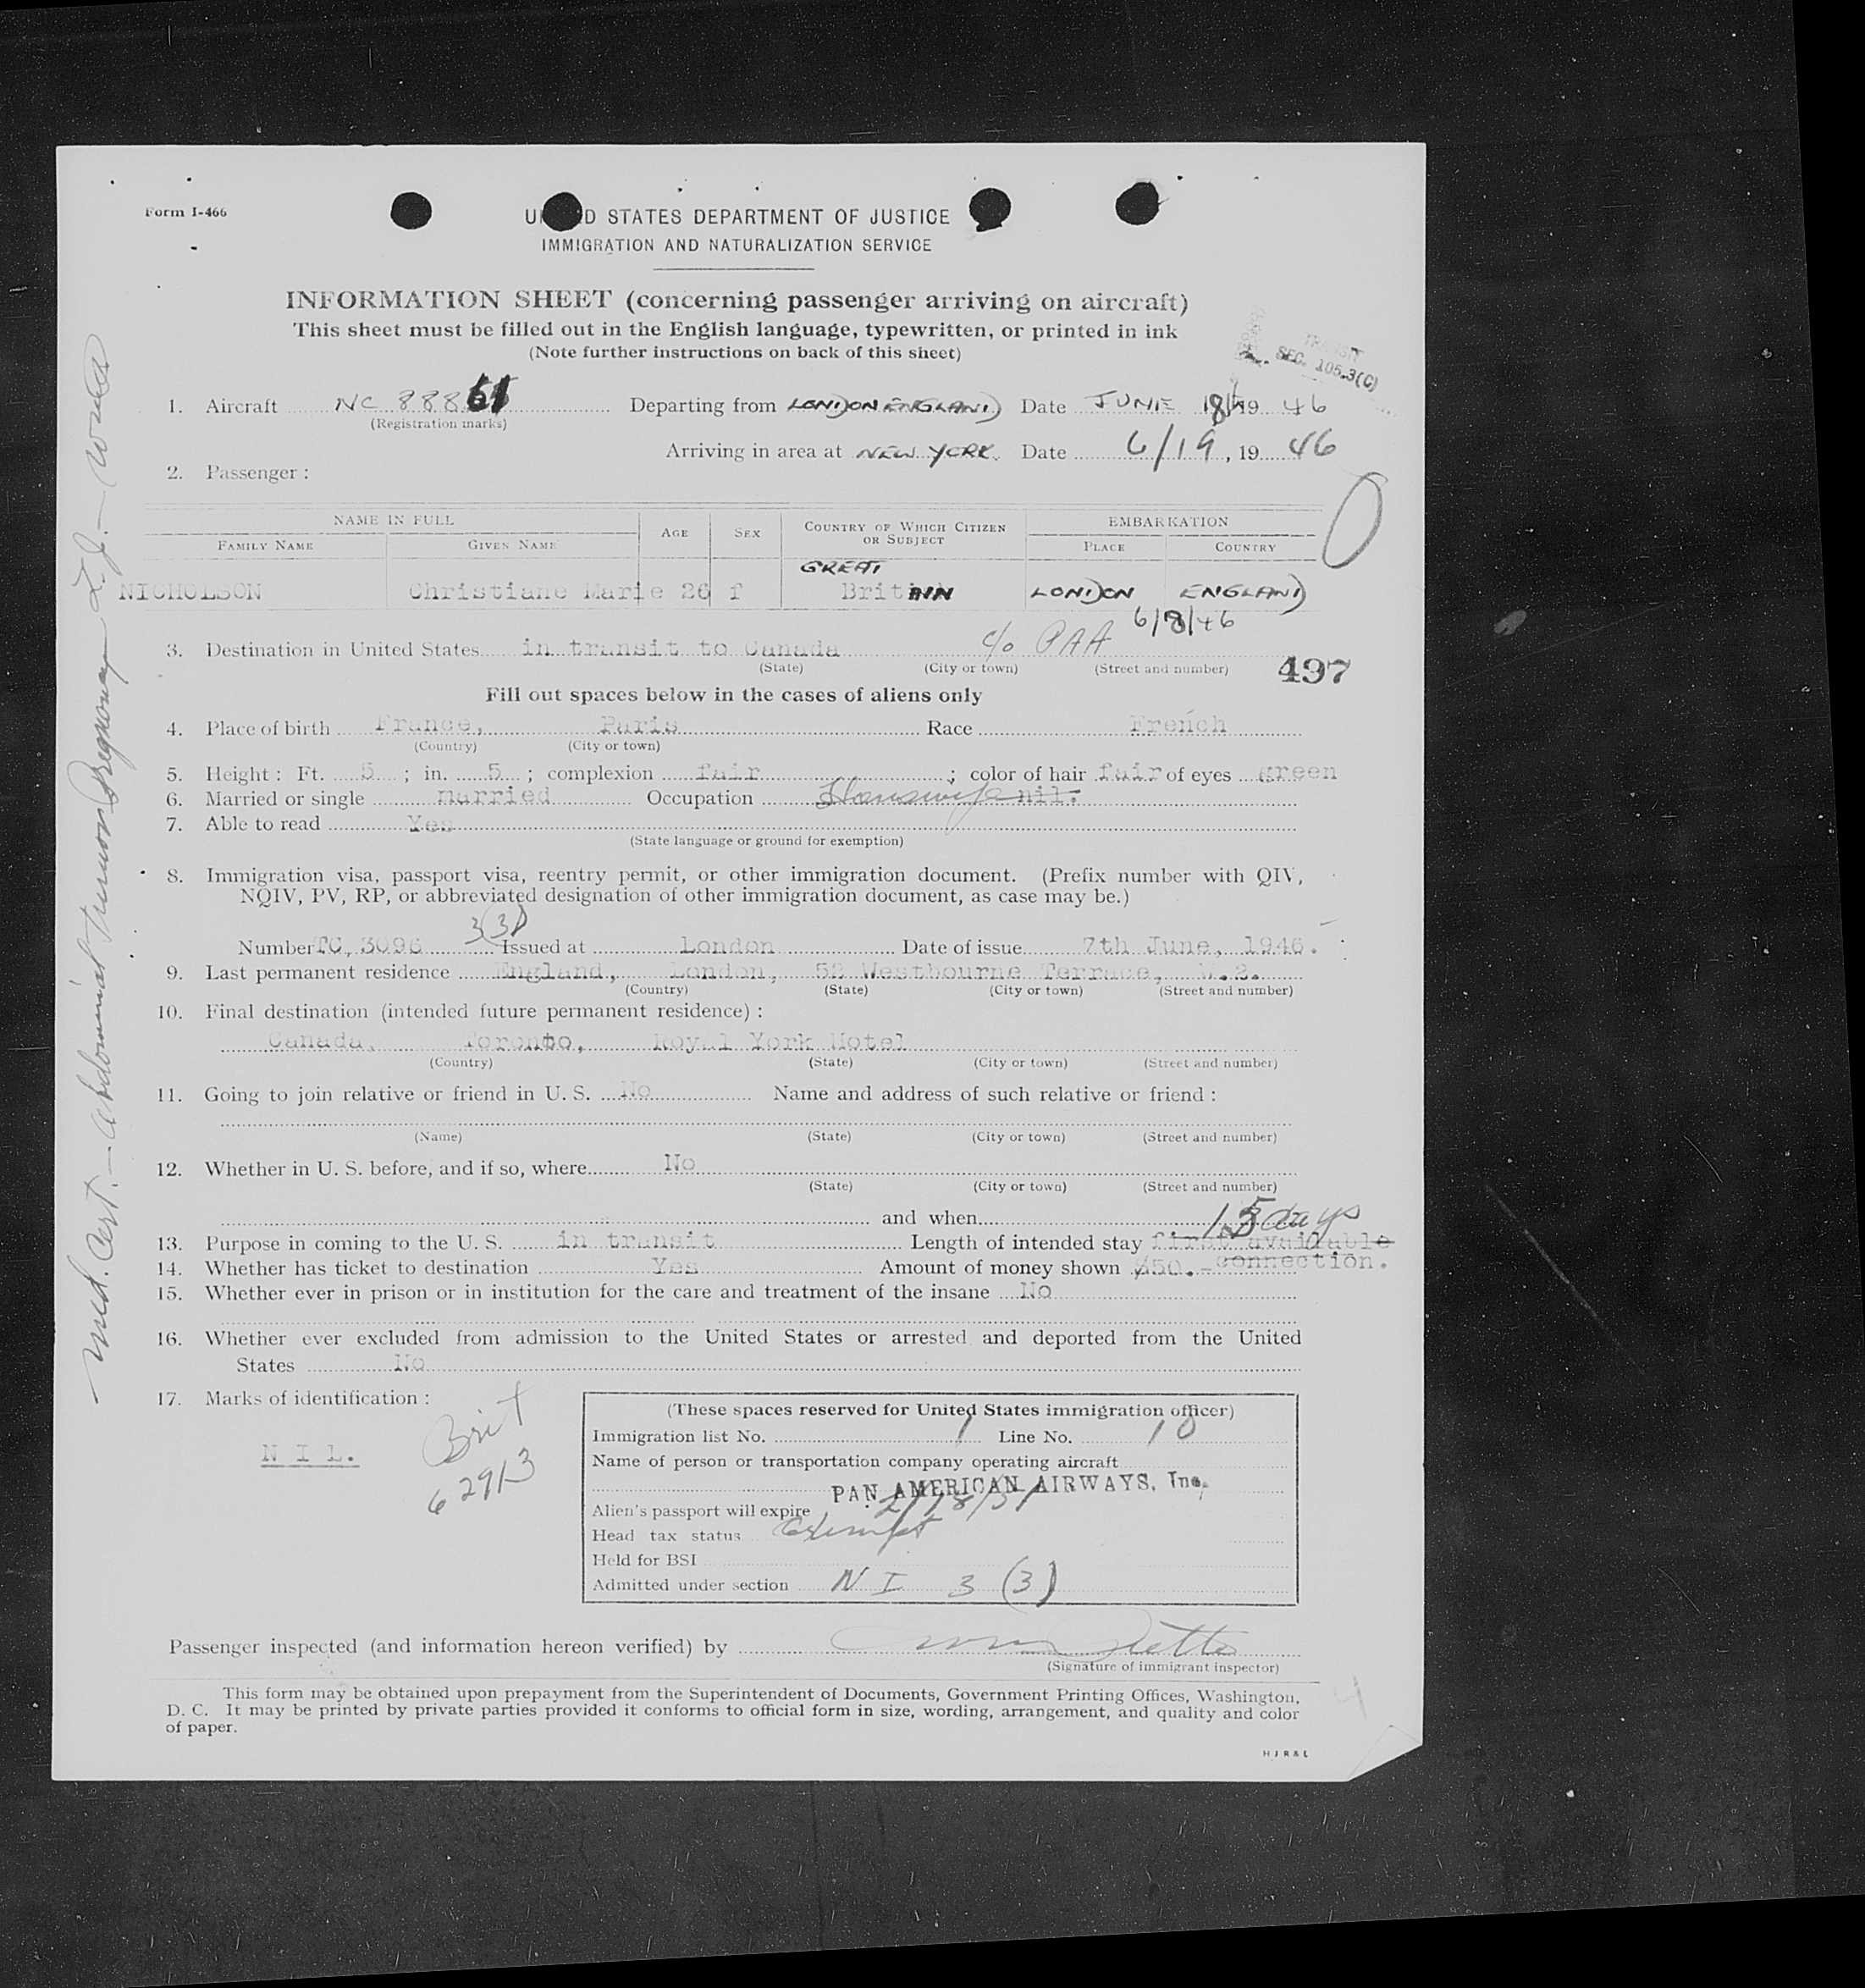 Form I-466
UNITED STATES DEPARTMENT OF JUSTICE
IMMIGRATION AND NATURALIZATION SERVICE
INFORMATION SHEET (concerning passenger arriving on aircraft)
This sheet must be filled out in the English language, typewritten, or printed in ink
(Note further instructions on back of this sheet)
TRANSIT
SEC. 105.3(C)
1. Aircraft NC 88861 Departing from LONDON ENGLAND Date JUNE 18th 19 46
(Registration marks)
Arriving in area at NEW YORK Date 6/19, 19 46
2. Passenger :
NAME IN FULL AGE SEX COUNTRY OF WHICH CITIZEN OR SUBJECT EMBARKATION
FAMILY NAME GIVEN NAME PLACE COUNTRY
GREAT
NICHOLSON Christiane Marie 26 f Britain LONDON ENGLAND
6/8/46
3. Destination in United States in transit to Canada c/o PAA
(State) (City or town) (Street and number)
497
Fill out spaces below in the cases of aliens only
4. Place of birth France, Paris Race French
(Country) (City or town)
5. Height : Ft. 5 ; in. 5 ; complexion fair ; color of hair fair of eyes green
6. Married or single Married Occupation Housewife nil.
7. Able to read Yes
(State language or ground for exemption)
8. Immigration visa, passport visa, reentry permit, or other immigration document. (Prefix number with QIV,
NQIV, PV, RP, or abbreviated designation of other immigration document, as case may be.)
3(3)
Number TC, 3096 Issued at London Date of issue 7th June, 1946.
9. Last permanent residence England, London, 52 Westbourne Terrace, W.2.
(Country) (State) (City or town) (Street and number)
10. Final destination (intended future permanent residence) :
Canada, Toronto, Royal York Hotel
(Country) (State) (City or town) (Street and number)
11. Going to join relative or friend in U. S. No Name and address of such relative or friend :
(Name) (State) (City or town) (Street and number)
12. Whether in U. S. before, and if so, where No
(State) (City or town) (Street and number)
and when
15 days
13. Purpose in coming to the U. S. in transit Length of intended stay first available
connection.
14. Whether has ticket to destination Yes Amount of money shown $50.-
15. Whether ever in prison or in institution for the care and treatment of the insane No
16. Whether ever excluded from admission to the United States or arrested and deported from the United
States No
17. Marks of identification :
N I L.
Brit
6 29/3
(These spaces reserved for United States immigration officer)
Immigration list No. 1 Line No. 10
Name of person or transportation company operating aircraft
PAN AMERICAN AIRWAYS, Inc.
Alien's passport will expire 2/18/51
Head tax status Exempt
Held for BSI
Admitted under section N I 3 (3)
Passenger inspected (and information hereon verified) by
(Signature of immigrant inspector)
This form may be obtained upon prepayment from the Superintendent of Documents, Government Printing Offices, Washington,
D. C. It may be printed by private parties provided it conforms to official form in size, wording, arrangement, and quality and color
of paper.
4
H J R & L
Med. Cert. - Abdominal tumor Pregnancy